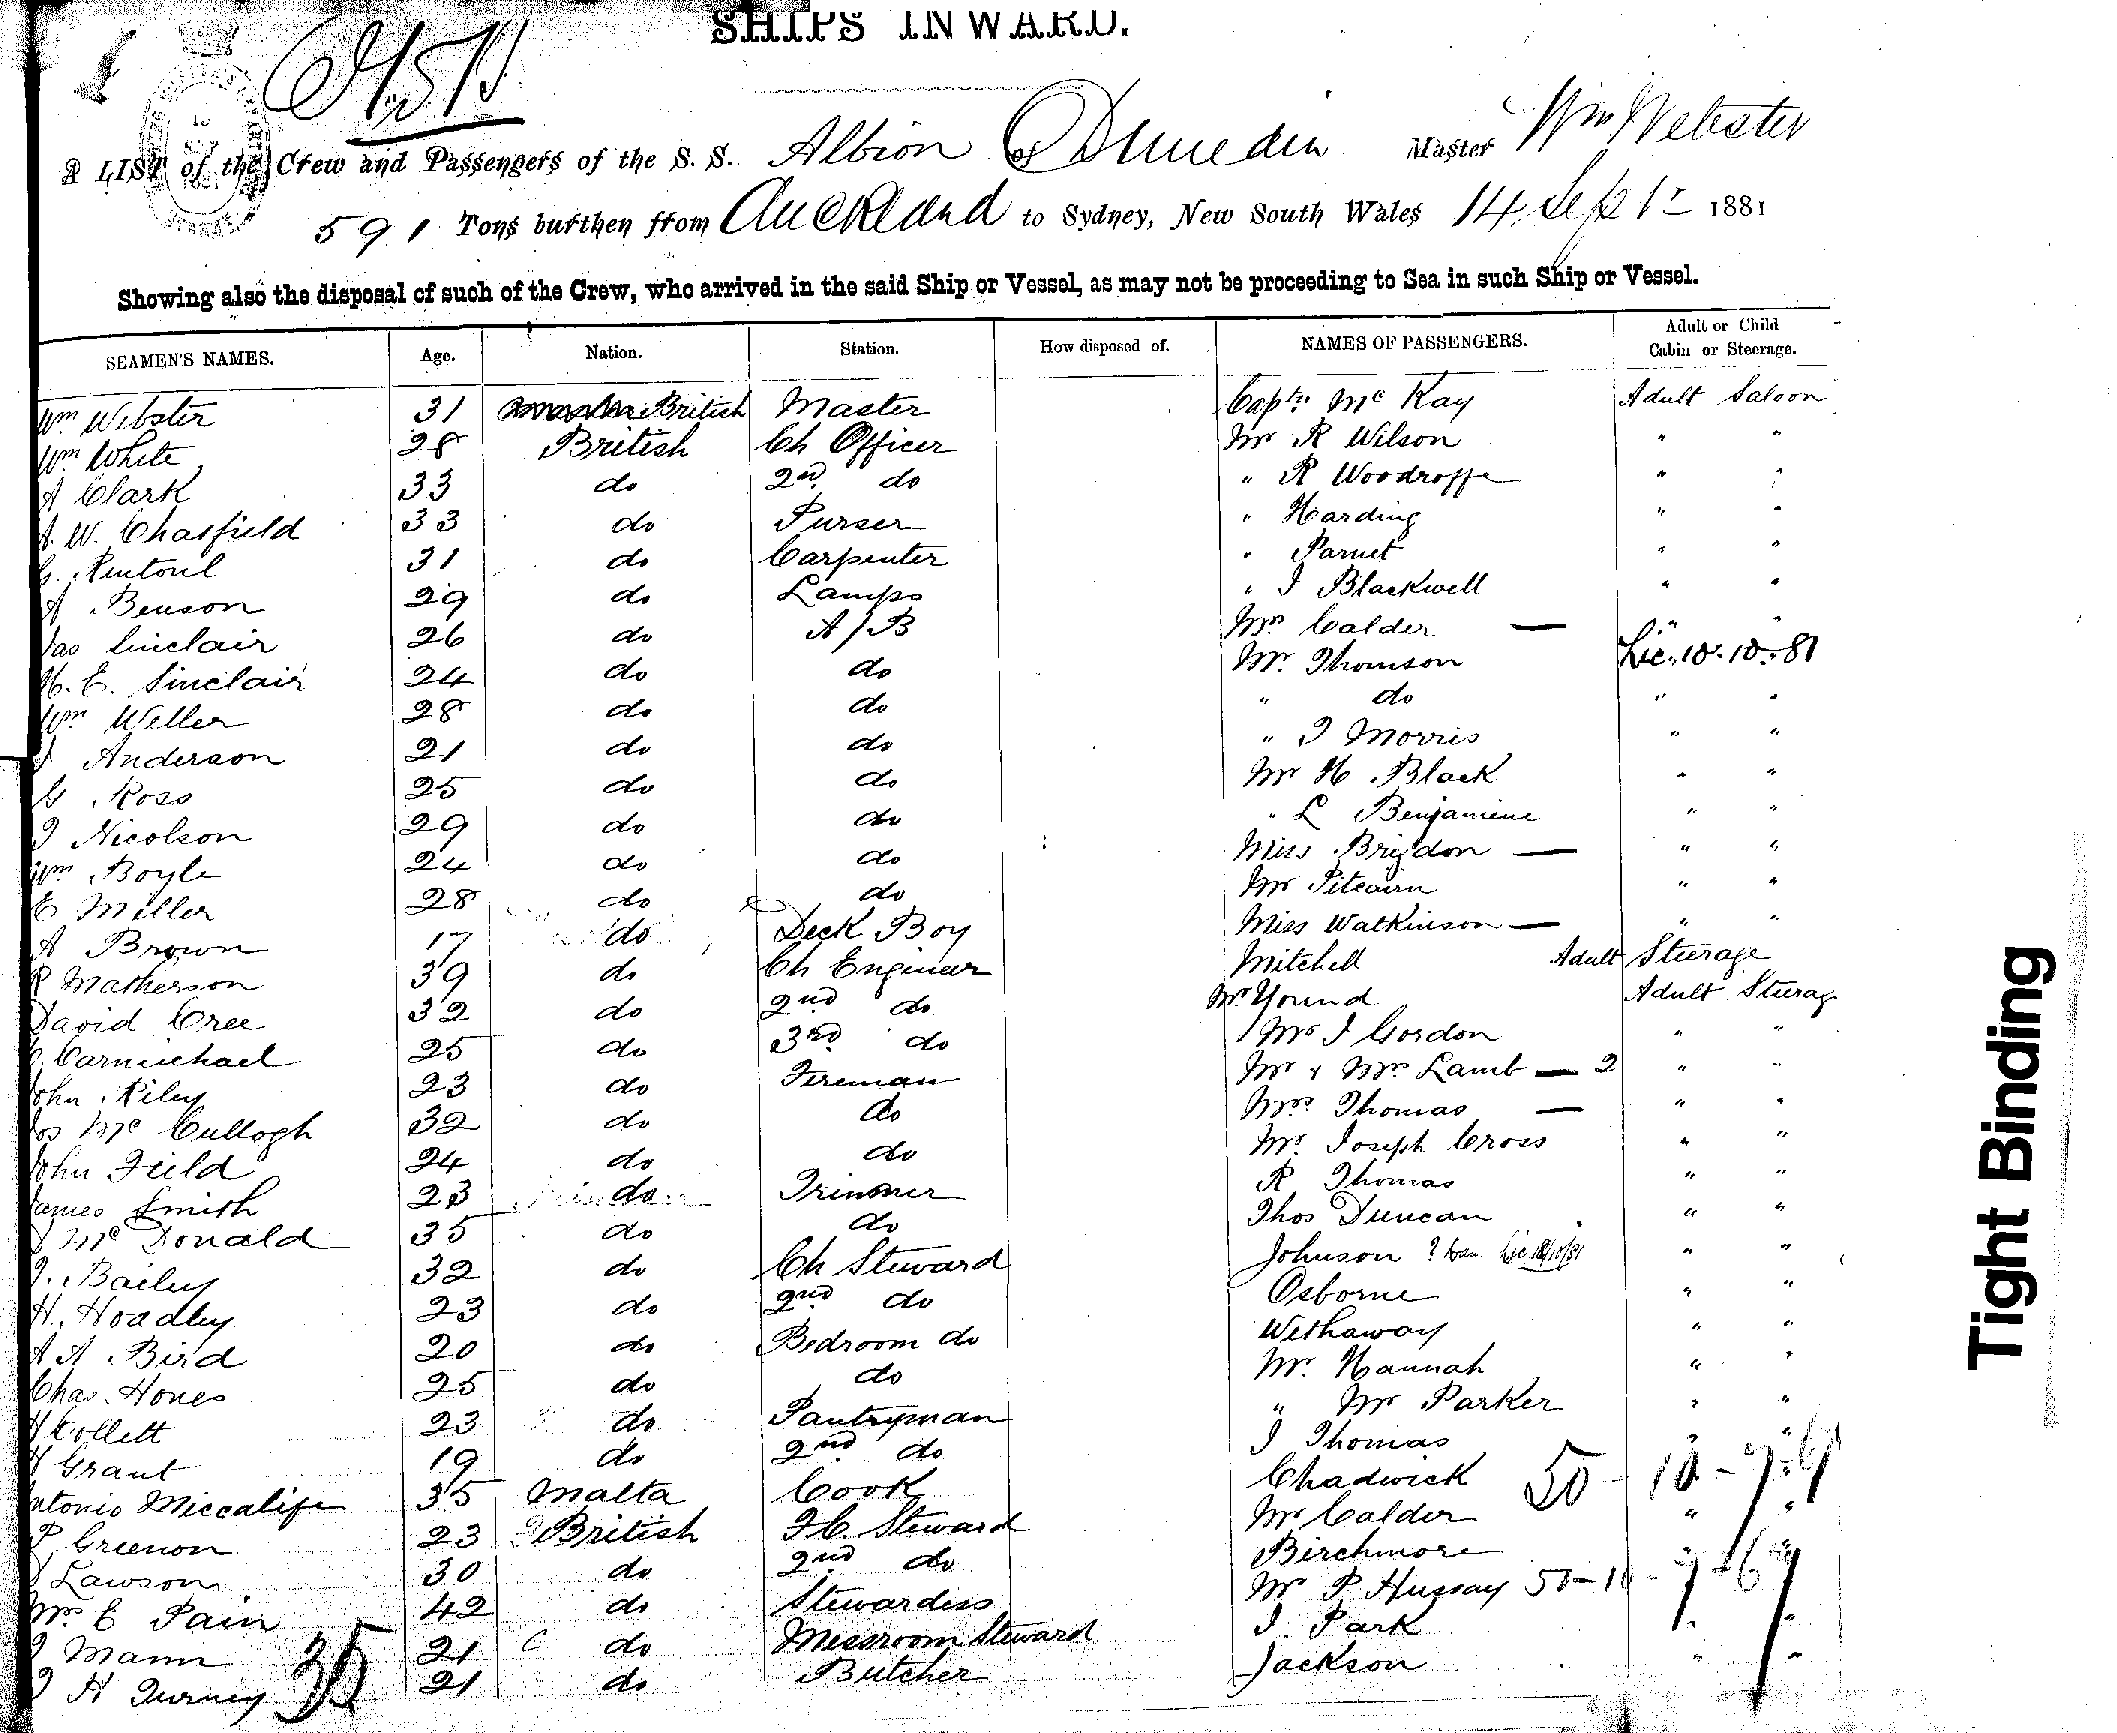 SHIPS INWARD.
A LIST of the Crew and Passengers of the S. S. Albion of Dunedin Master Wm Webster
591 Tons burthen from Auckland to Sydney, New South Wales 14 Sept 1881
Showing also the disposal of such of the Crew, who arrived in the said Ship or Vessel, as may not be proceeding to Sea in such Ship or Vessel.
SEAMEN'S NAMES. Age. Nation. Station. How disposed of. NAMES OF PASSENGERS. Adult or Child Cabin or Steerage.
Wm Webster 31 British Master Captn Mc Kay Adult Saloon
Wm White 28 British Ch Officer Mr R Wilson " "
A Clark 33 do 2nd do " R Woodroffe " "
A. W. Chatfield 33 do Purser " Harding " "
G. Rentoul 31 do Carpenter " Parnet " "
A Benson 29 do Lamps " J Blackwell " "
Jas Sinclair 26 do A/B Mrs Calder — " "
H. E. Sinclair 24 do do Mr. Thomson Lic. 10. 10. 81
Wm Weller 28 do do " do " "
J Anderson 21 do do " J Morris " "
G Ross 25 do do Mr H Black " "
J Nicolson 29 do do " L Benjamine " "
Wm Boyle 24 do do Miss Brigdon — " "
E Miller 28 do do Mr Pitcairn " "
A Brown 17 do Deck Boy Miss Watkinson — " "
R Matherson 39 do Ch Engineer Mitchell Adult Steerage
David Cree 32 do 2nd do Mr Yound Adult Steerag
C Carmichael 25 do 3rd do Mr J Gordon " "
John Riley 23 do Fireman Mr & Mrs Lamb — 2 " "
Jos Mc Cullogh 32 do do Mrs Thomas — " "
John Field 24 do do Mr. Joseph Cross " "
James Smith 23 do Trimmer R Thomas " "
J Mc Donald 35 do do Thos Duncan " "
J. Bailey 32 do Ch Steward Johnson " "
H. Hoadley 23 do 2nd do Osborne " "
A A Bird 20 do Bedroom do Wethaway " "
Chas. Hones 25 do do Mr. Hannah " "
H Collett 23 do Pantryman " Mr Parker " "
H Grant 19 do 2nd do J Thomas " "
Antonio Miccalife 35 Malta Cook Chadwick 50 - 10 - 7 - 6
P Greenon 23 British F.C. Steward Mr Calder " "
J Lawson 30 do 2nd do Birchmore " "
Mrs E Pain 42 do Stewardess Mr P Hussay 50 - 10 - 7 - 6
J Mann 21 do Messroom Steward J. Park " "
J H Turney 21 do Butcher Jackson " "
35
Tight Binding